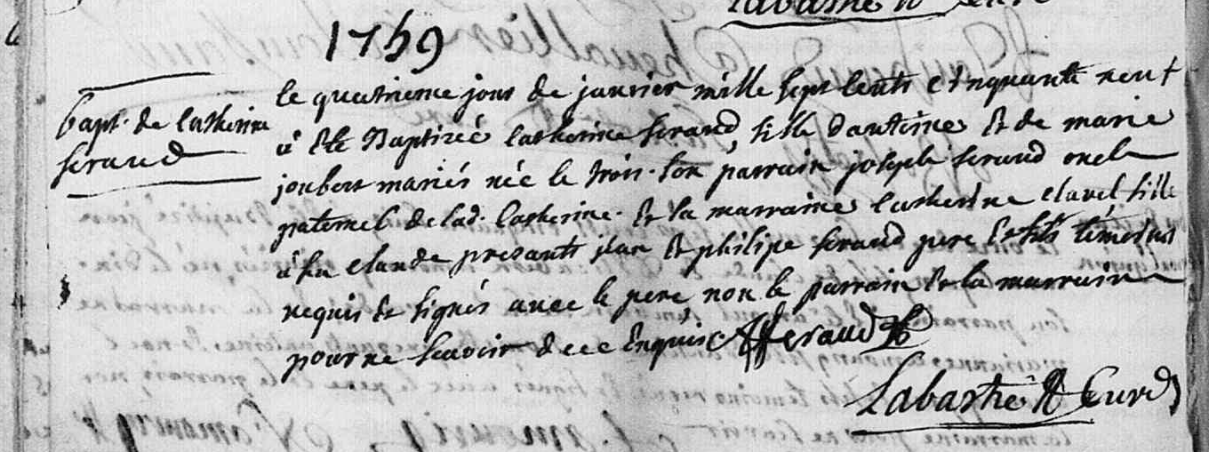 Labastie
1759
bapt. de Catherine
feraud
le quatrieme jour de janvier mille sept cents cinquante neuf
a été Baptizée Catherine feraud fille d'antoine et de marie
joubert mariés née le trois. son parrain joseph feraud oncle
paternel de lad. Catherine. et la marraine Catherine Clavel fille
à feu Claude presants jean et philipe feraud pere et fils témoins
requis et signés avec le pere non le parrain et la marraine
pour ne scavoir de ce Enquis feraud
Labastie Curé